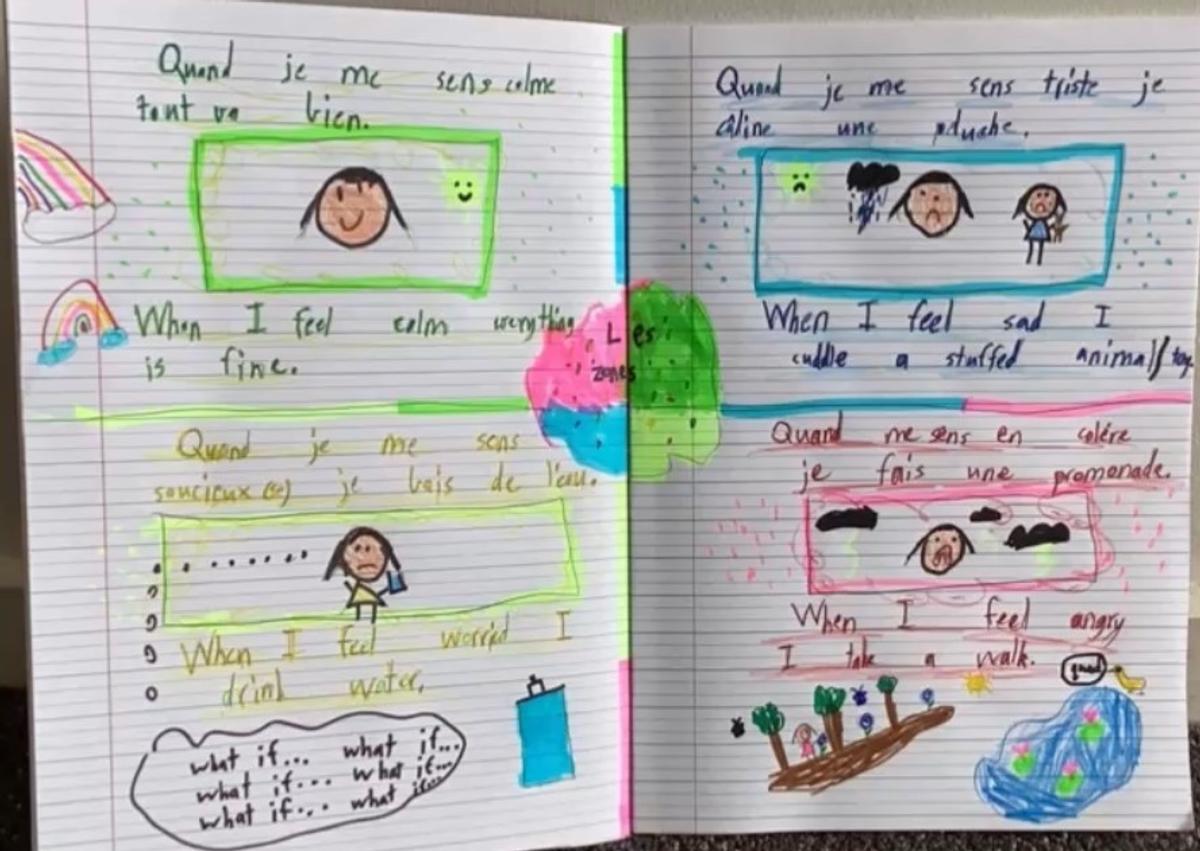 Quand je me sens calme
tout va bien.
When I feel calm everything
is fine.
Quand je me sens triste je
câline une pluche.
When I feel sad I
cuddle a stuffed animal/toy
Les
zones
Quand je me sens
soucieux (se) je bois de l'eau.
When I feel worried I
drink water.
what if... what if...
what if... what if...
what if... what if...
Quand me sens en colére
je fais une promenade.
When I feel angry
I take a walk.
quack